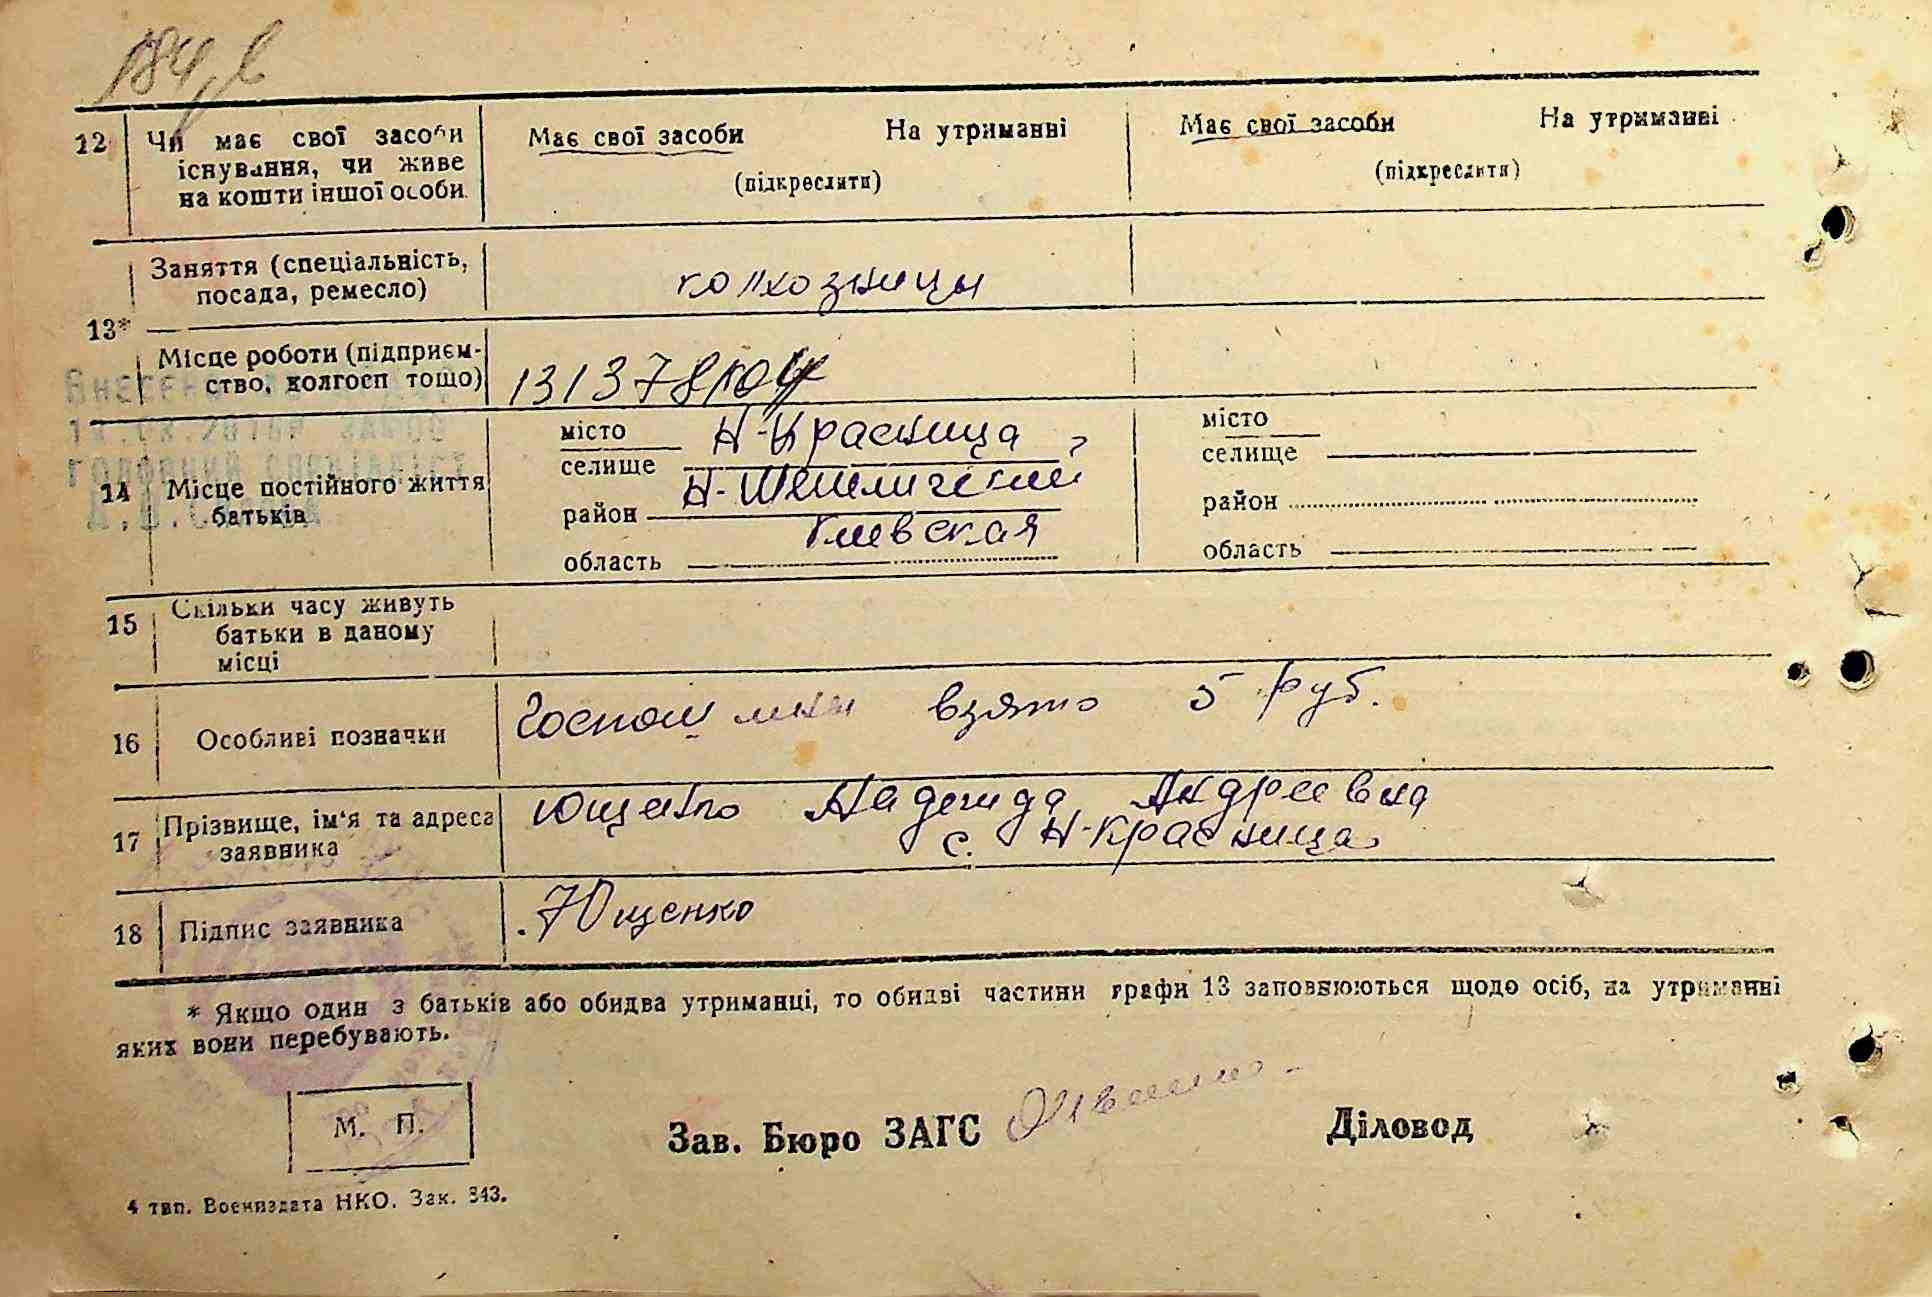 12 Чи має свої засоби Має свої засоби На утриманні Має свої засоби На утриманні
існування, чи живе (підкреслити) (підкреслити)
на кошти іншої особи
Заняття (спеціальність, колхозницы
посада, ремесло)
13*
Місце роботи (підприєм-
ство, колгосп тощо) 131378
місто Н-Красница місто
селище селище
14 Місце постійного життя Н-Шепеличский
батьків район район
Киевская
область область
15 Скільки часу живуть
батьки в даному
місці
16 Особливі позначки Госпошлины взято 5 руб.
17 Прізвище, ім'я та адреса Ющенко Надежда Андреевна
заявника с. Н-Красница
18 Підпис заявника Ющенко
* Якщо один з батьків або обидва утриманці, то обидві частини графи 13 заповнюються щодо осіб, на утриманні
яких вони перебувають.
М. П. Зав. Бюро ЗАГС Діловод
4 тип. Воениздата НКО. Зак. 343.